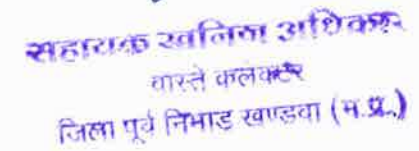 सहायक खनिज अधिकारी
वास्ते कलेक्टर
जिला पूर्व निमाड खण्डवा (म.प्र.)